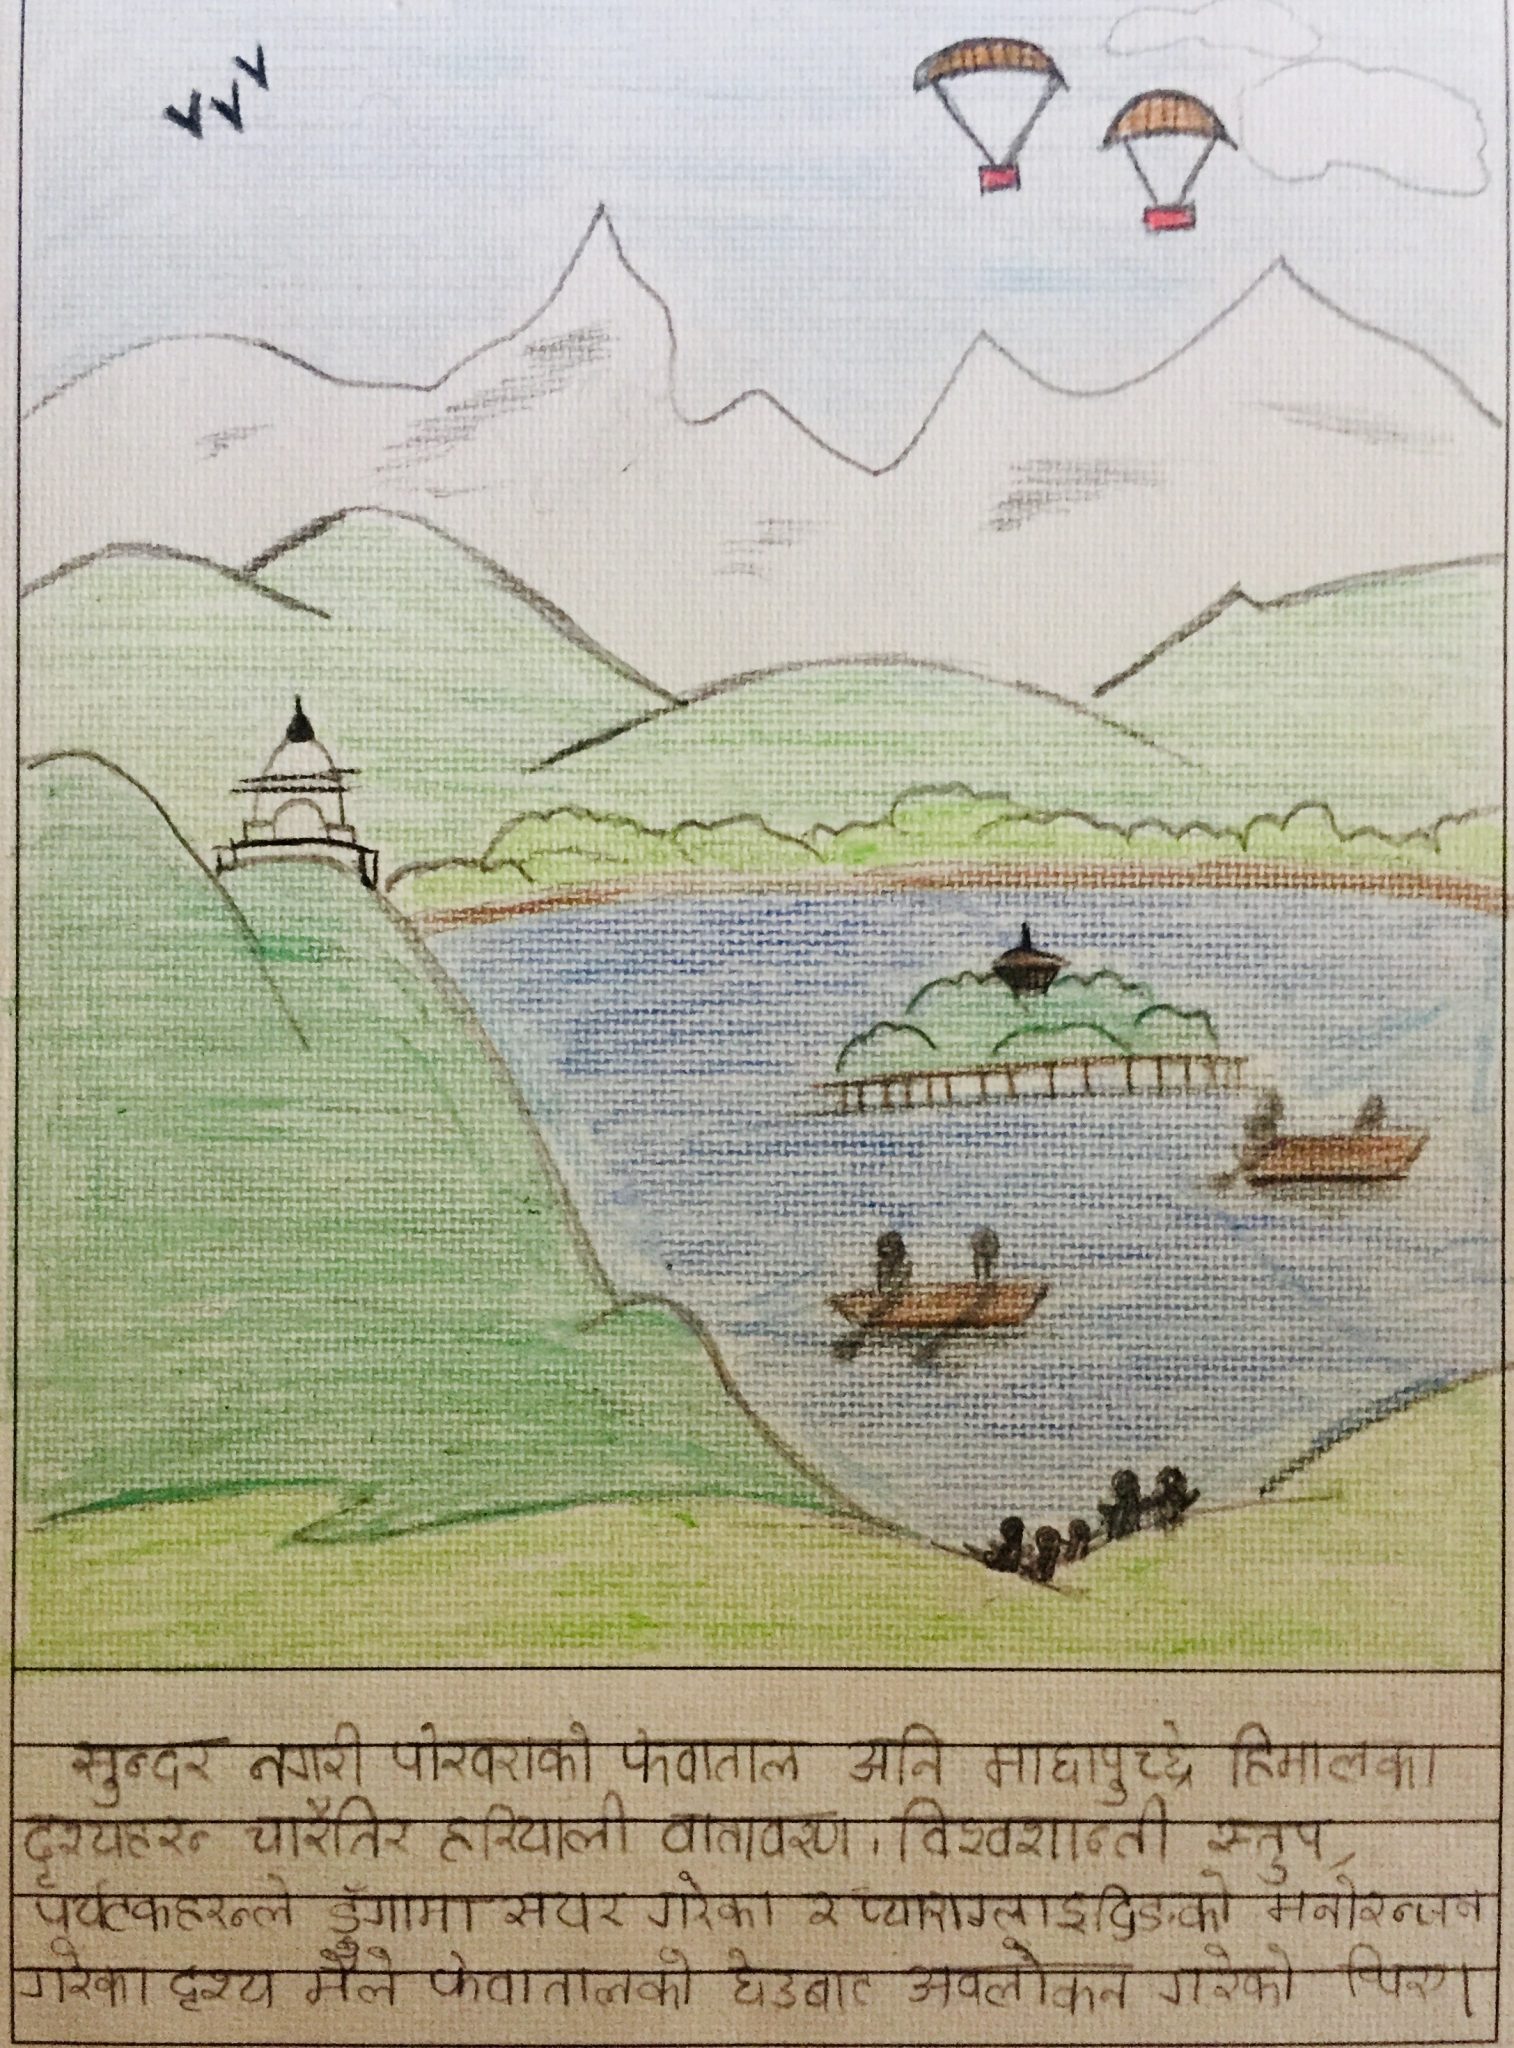 सुन्दर नगरी पोखराको फेवाताल अनि माछापुच्छ्रे हिमालका
दृश्यहरु चारैतिर हरियाली वातावरण, विश्वशान्ती स्तुप,
पर्यटकहरुले डुँगामा सयर गरेका र प्याराग्लाइदिङको मनोरन्जन
गरेका दृश्य मैले फेवातालको छेउबाट अवलोकन गरेको थिए।